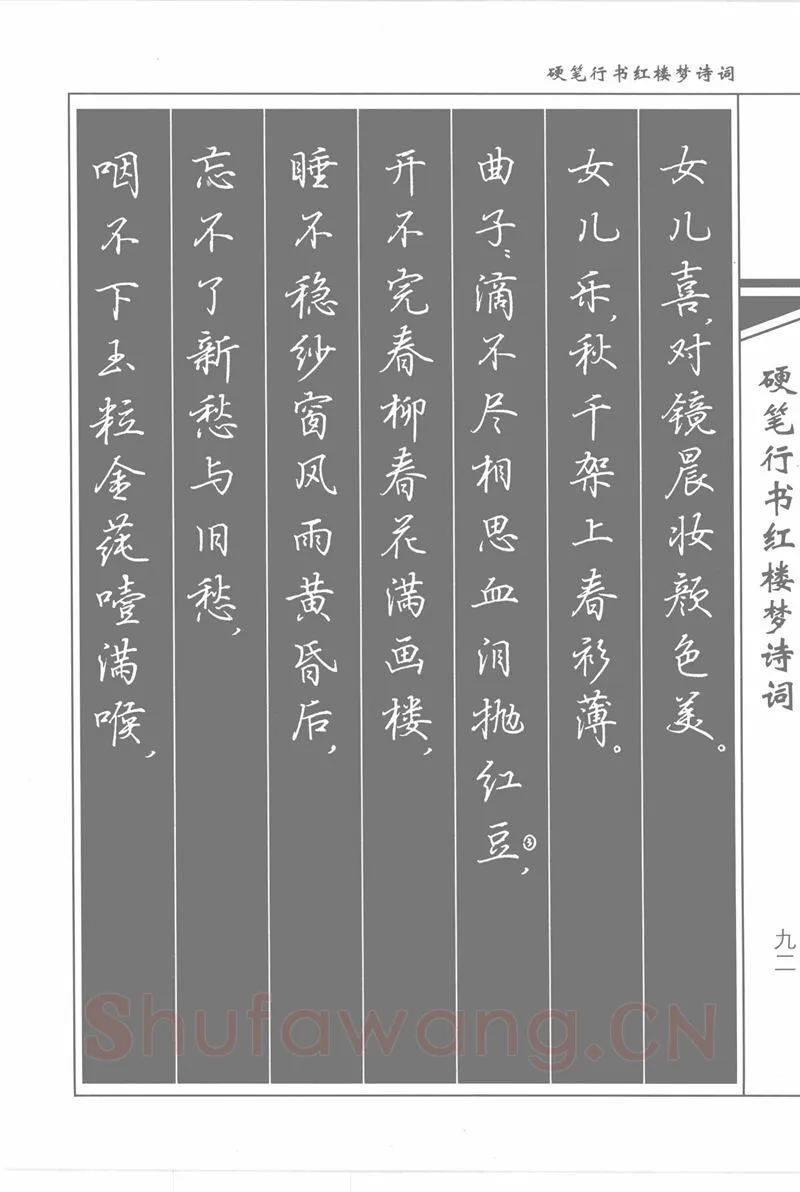 硬笔行书红楼梦诗词
女儿喜,对镜晨妆颜色美。
女儿乐,秋千架上春衫薄。
曲子:滴不尽相思血泪抛红豆③,
开不完春柳春花满画楼,
睡不稳纱窗风雨黄昏后,
忘不了新愁与旧愁,
咽不下玉粒金莼噎满喉,
硬笔行书红楼梦诗词
九二
Shufawang.CN